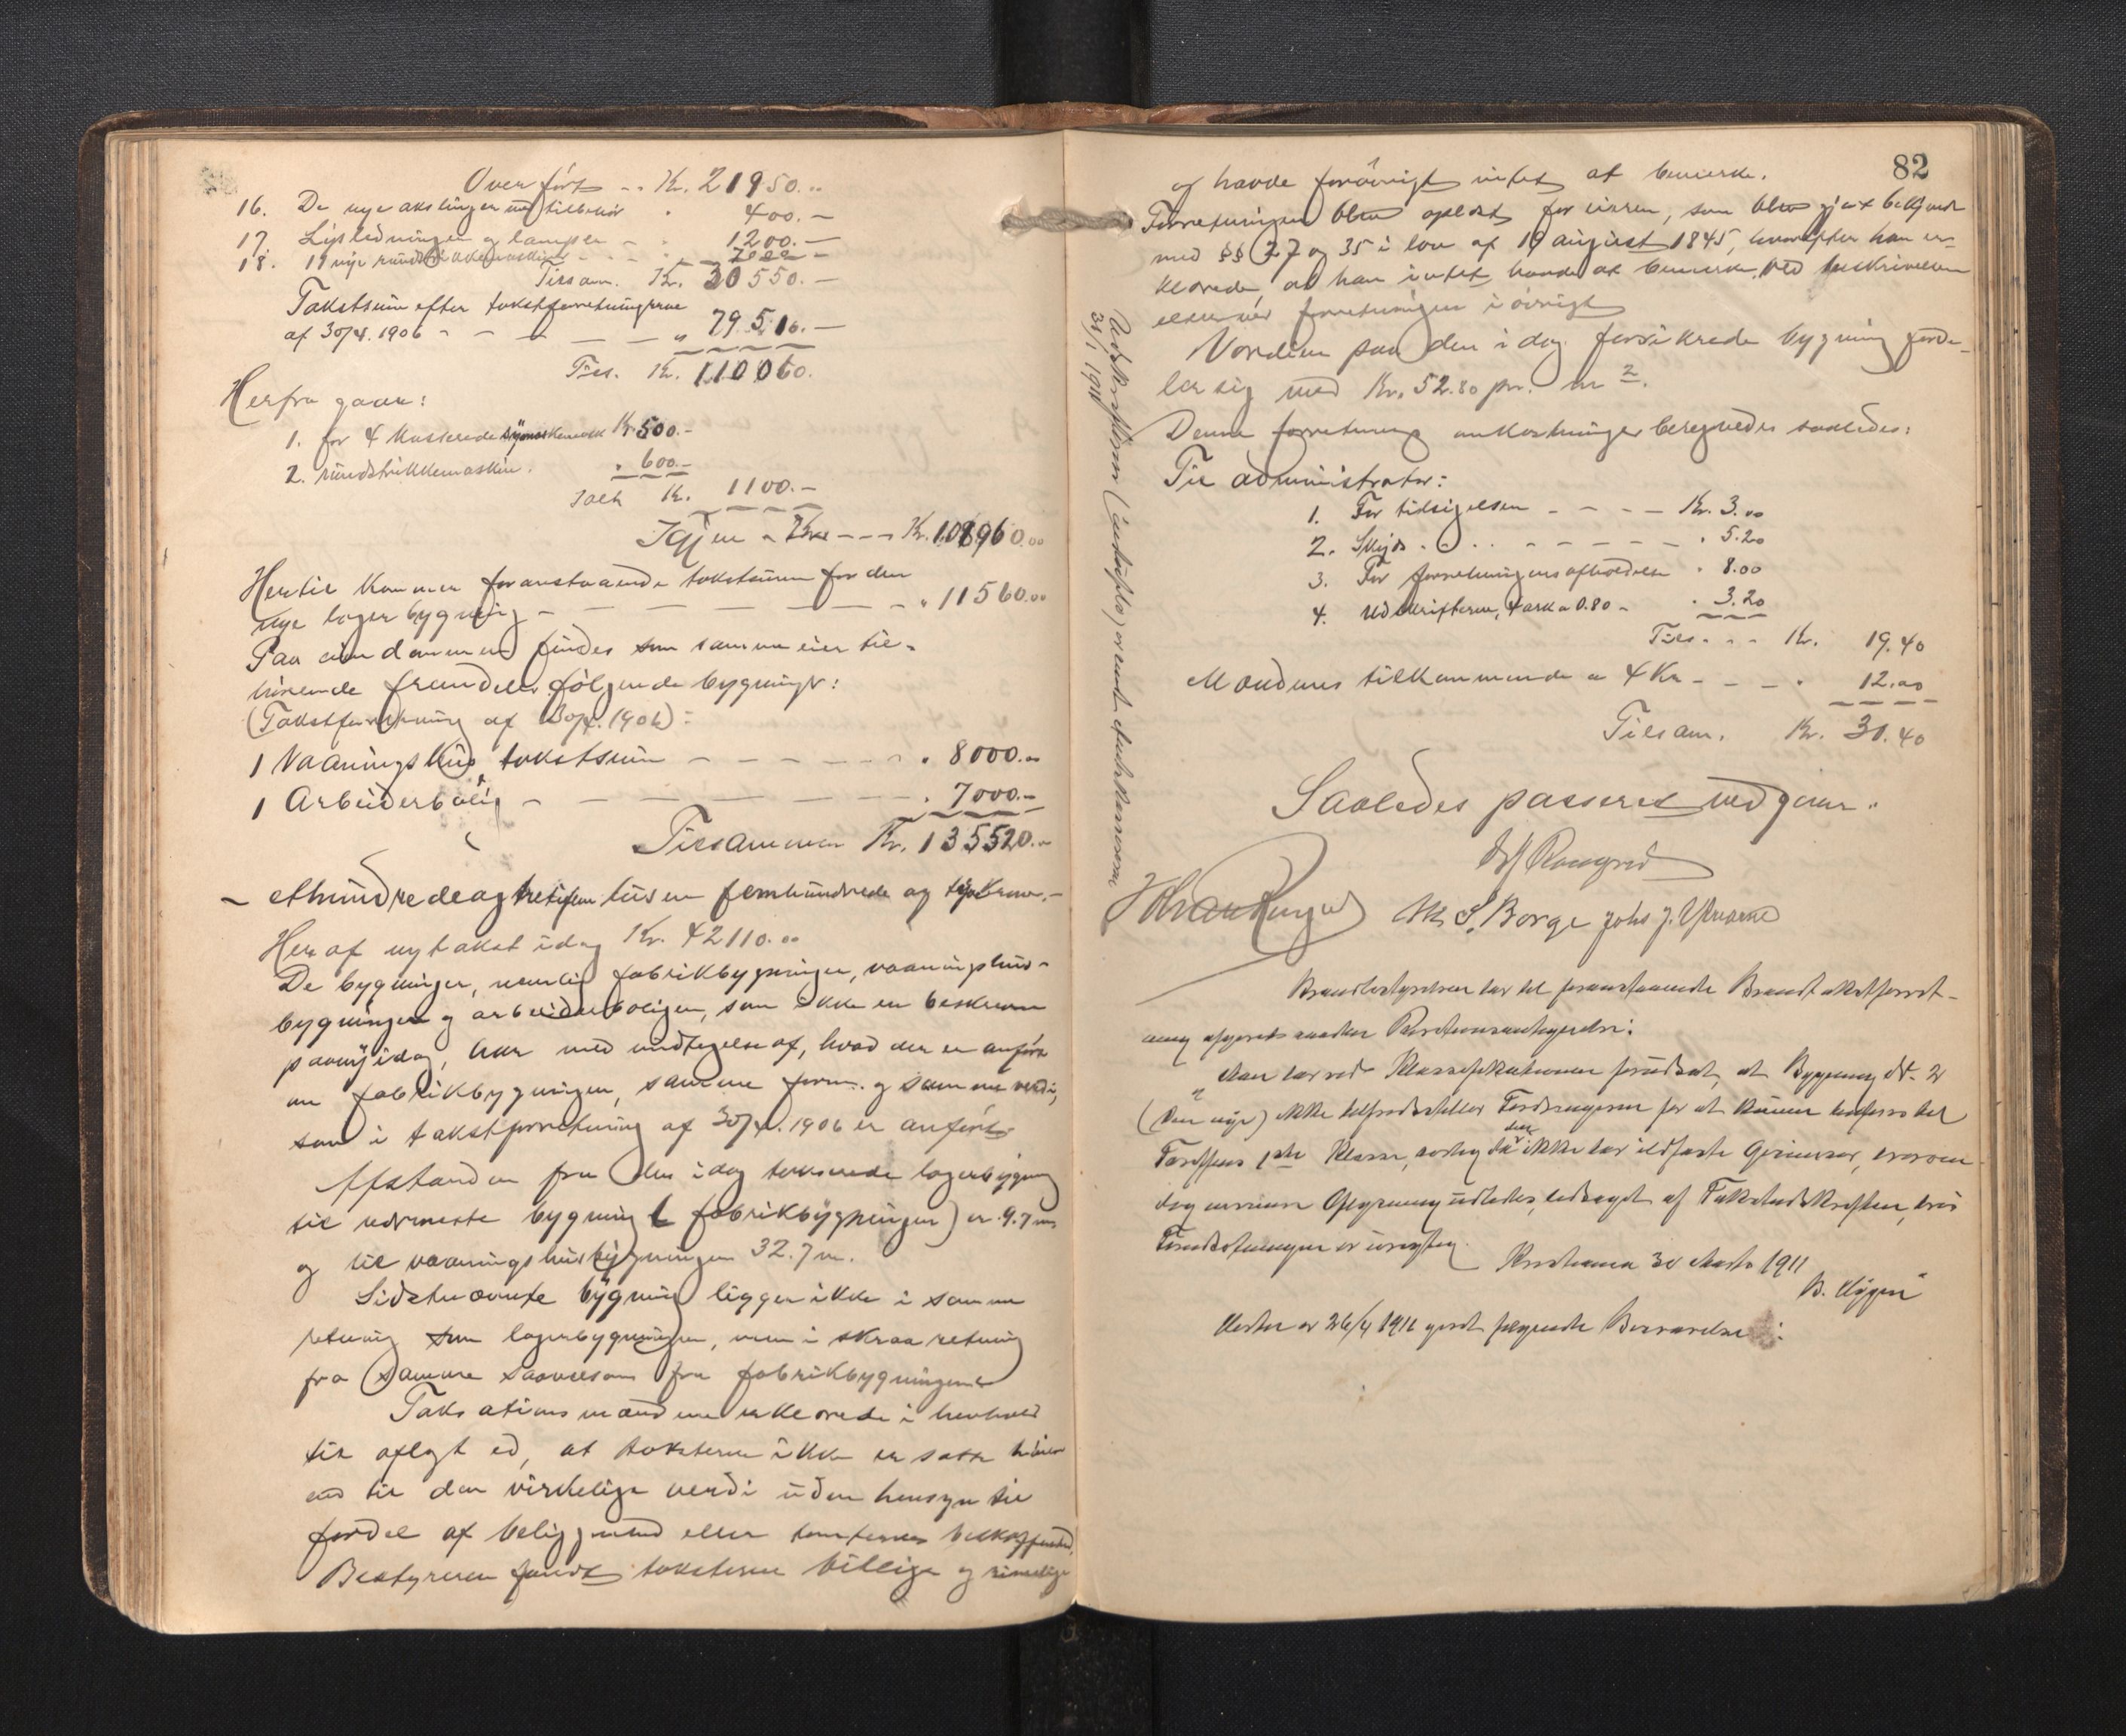 Overført - - Kr. 21950.00
16. De nye akslinger med tilbehör " 400.-
17. Lysledninger og lamper - " 1200.-
18. 19 nye rundstrikkemaskiner - - - " 7000 -
Tilsam. Kr. 30550.-
Takstsum efter takstforretningerne
af 30/4. 1906 - - - - - " 79510.-
Tils. Kr. 110060.
Herfra gaar:
1. for 4 kasserede Kr 500.-
2. rundstrikkemaskin. " 600.-
Ialt Kr. 1100.-
Igjen - - - - Kr. 108960.00
Hertil kommer foranstaaende takstsum for den
nye lagerbygning - - - - - " 11560.00
Paa eiendommen findes som samme eier til-
hörende fremdeles følgende bygninger:
(Takstforretning af 30/4. 1906):
1 Vaaningshus, takstsum - - - - - " 8000.00
1 Arbeiderbolig - - - - - " 7000.-
Tilsammen Kr. 135520.00
- ethundredeogtretifem tusen femhundrede og tyve kroner. -
Heraf nytakst idag Kr. 42110.00
De bygninger, nemlig fabrikbygningen, vaaningshus-
bygningen og arbeiderboligen, som ikke er beskrevne
paany idag, har med undtagelse af, hvad der er anført
om fabrikbygningen, samme form og samme verdi,
som i takstforretning af 30/4. 1906 er anført.
Afstanden fra den idag takserede lagerbygning
til nærmeste bygning (fabrikbygningen) er 9.7 m
og til vaaningshusbygningen 32.7 m.
Sidstnævnte bygning ligger ikke i samme
retning som lagerbygningen, men i skraa retning
fra samme saavelsom fra fabrikbygningen
Taksationsmændene erklærede i henhold
til aflagt ed, at taksterne ikke er satte höiere
end til den virkelige verdi uden hensyn til
fordel af beliggenhed eller tomternes beskaffenhed.
Bestyreren fandt taksterne billige og rimelige
82
og havde forövrigt intet at bemerke.
Forretningen blev oplæst for eieren, som blev gjort bekjendt
med §§ 27 og 35 i lov af 19 august 1845, hvorefter han er-
klærede, at han intet havde at bemerke ved beskrivelsen
eller ved forretningen i övrigt
Værdien paa den i dag forsikrede bygning forde-
ler sig med Kr. 52.80 pr. m 2.
Denne forretnings omkostninger beregnedes saaledes:
Til administrator:
1. For tilsigelsen - - - - Kr. 3.00
2. Skyds - - - - - - - " 5.20
3. For forretningens afholdelse " 8.00
4. Udskriften, 4 ark a 0.80 - " 3.20
Tils. - - Kr. 19.40
Mændenes tilkommende a 4 Kr - - - " 12.00
Tilsam. Kr. 31.40
Saaledes passeret vedgaar.
M S. Borge Johs J.
Brandbestyrelsen har til foranstaaende Brandtakstforret-
ning afgivet saadan Revisionsantegnelse:
"Man har ved Klassifikationen forudsat, at Bygning No. 2
(den nye) ikke tilfredsstiller Fordringerne for at kunne henføres til
Tariffens 1ste Klasse, særlig da den ikke har ildfaste Gesimser, hvorom
dog nærmere Oplysning udbedes, ledsaget af Takstudskriften, hvis
Forudsetningen er urigtig.
Kristiania 30 Marts 1911
Herfor er 26/4 1911 givet følgende Besvarelse:
31/1 1911